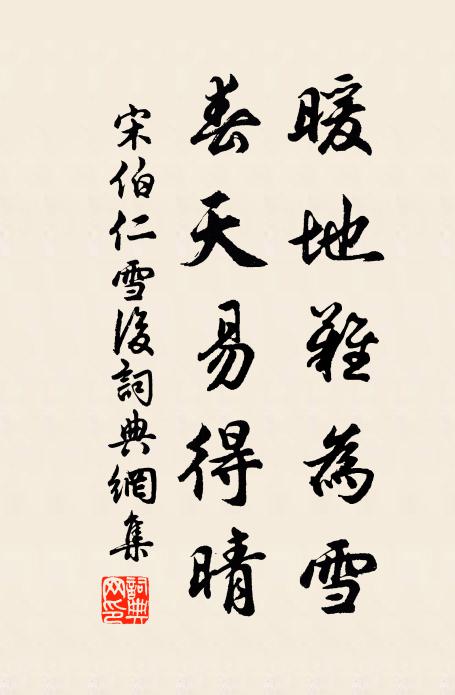 暖地難為雪
春天易得晴
宋伯仁雪後詞典網集
詞典网印